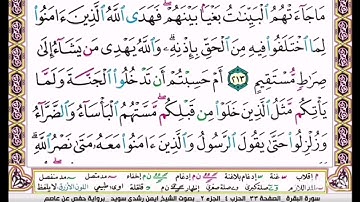 مَا جَآءَتْهُمُ ٱلْبَيِّنَـٰتُ بَغْيًۢا بَيْنَهُمْ ۖ فَهَدَى ٱللَّهُ ٱلَّذِينَ ءَامَنُوا۟
لِمَا ٱخْتَلَفُوا۟ فِيهِ مِنَ ٱلْحَقِّ بِإِذْنِهِۦ ۗ وَٱللَّهُ يَهْدِى مَن يَشَآءُ إِلَىٰ
صِرَٰطٍ مُّسْتَقِيمٍ ٢١٣ أَمْ حَسِبْتُمْ أَن تَدْخُلُوا۟ ٱلْجَنَّةَ وَلَمَّا
يَأْتِكُم مَّثَلُ ٱلَّذِينَ خَلَوْا۟ مِن قَبْلِكُم ۖ مَّسَّتْهُمُ ٱلْبَأْسَآءُ وَٱلضَّرَّآءُ
وَزُلْزِلُوا۟ حَتَّىٰ يَقُولَ ٱلرَّسُولُ وَٱلَّذِينَ ءَامَنُوا۟ مَعَهُۥ مَتَىٰ نَصْرُ ٱللَّهِ ۗ
سورة البقرة _ الصفحة ٣٣ _ الحزب ٤ _ الجزء ٢ _ بصوت الشيخ أيمن رشدي سويد _ برواية حفص عن عاصم